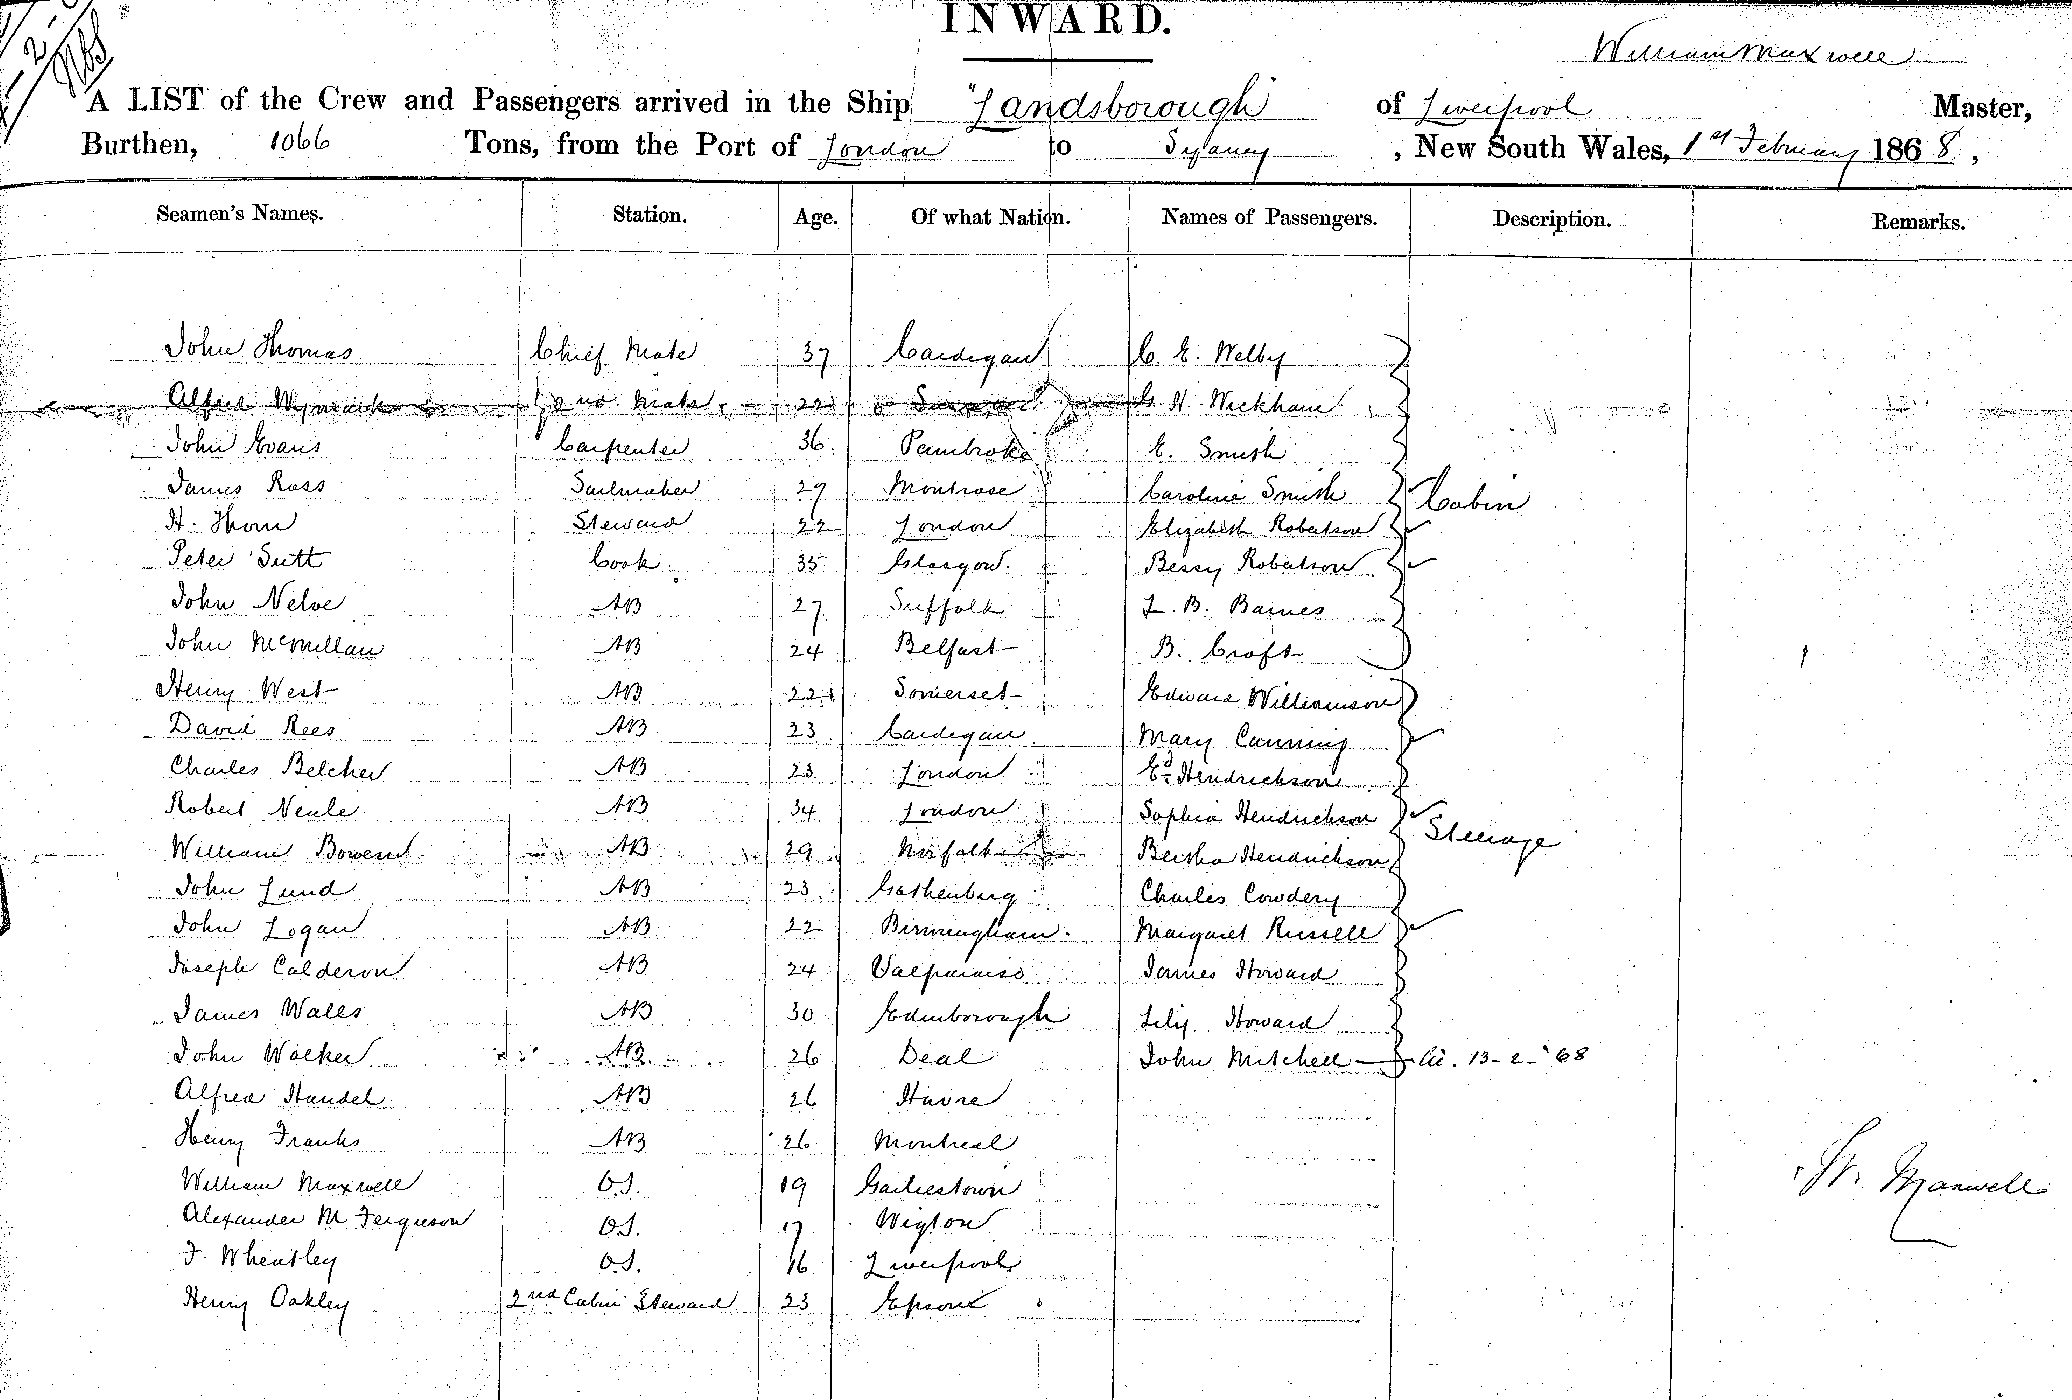 INWARD.
William Maxwell
A LIST of the Crew and Passengers arrived in the Ship "Landsborough of Liverpool Master,
Burthen, 1066 Tons, from the Port of London to Sydney, New South Wales, 1st February 1868,
Seamen's Names. Station. Age. Of what Nation. Names of Passengers. Description. Remarks.
John Thomas Chief Mate 37 Cardigan C. E. Welby
Alfred 2nd Mate 22 H Wickham
John Evans Carpenter 36 Pembroke E. Smith
James Ross Sailmaker 29 Montrose Caroline Smith Cabin
H. Thorn Steward 22 London Elizabeth Robertson
Peter Sutt Cook 35 Glasgow. Bessy Robertson
John Nelve AB 27 Suffolk L. B. Baines
John McMillan AB 24 Belfast B. Croft
Henry West AB 22 Somerset Edward Williamson
David Rees AB 23 Cardigan Mary Canning
Charles Belcher AB 23 London Ed Hendrickson
Robert Neule AB 34 London Sophia Hendrickson Steerage
William Bowen AB 29 Norfolk Bertha Hendrickson
John Lund AB 23 Gothenburg Charles Cowdery
John Logan AB 22 Birmingham. Margaret Russell
Joseph Calderon AB 24 Valparaiso James Howard
James Wales AB 30 Edinborough Lily Howard
John Walker AB 26 Deal John Mitchell 13-2-'68
Alfred Handel AB 26 Havre
Henry Franks AB 26 Montreal
William Maxwell O.S. 19 Garliestown
Alexander M Ferguson O.S. 17 Wigton
F. Wheatley O.S. 16 Liverpool
Henry Oakley 2nd Cabin Steward 23 Epsom
W. Maxwell